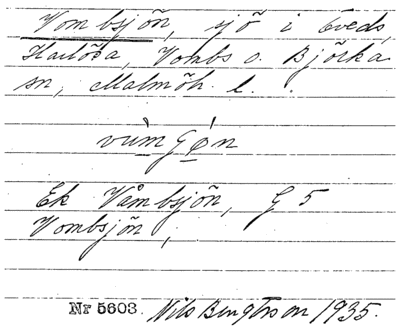 Vombsjön, sjö i Öveds,
Harlösa, Vombs o. Björka
sn, Malmöh. l.
vùmʃǿn
Ek Våmbsjön, G 5
Vombsjön,
Nr 5603. Nils Bengtsson 1935.